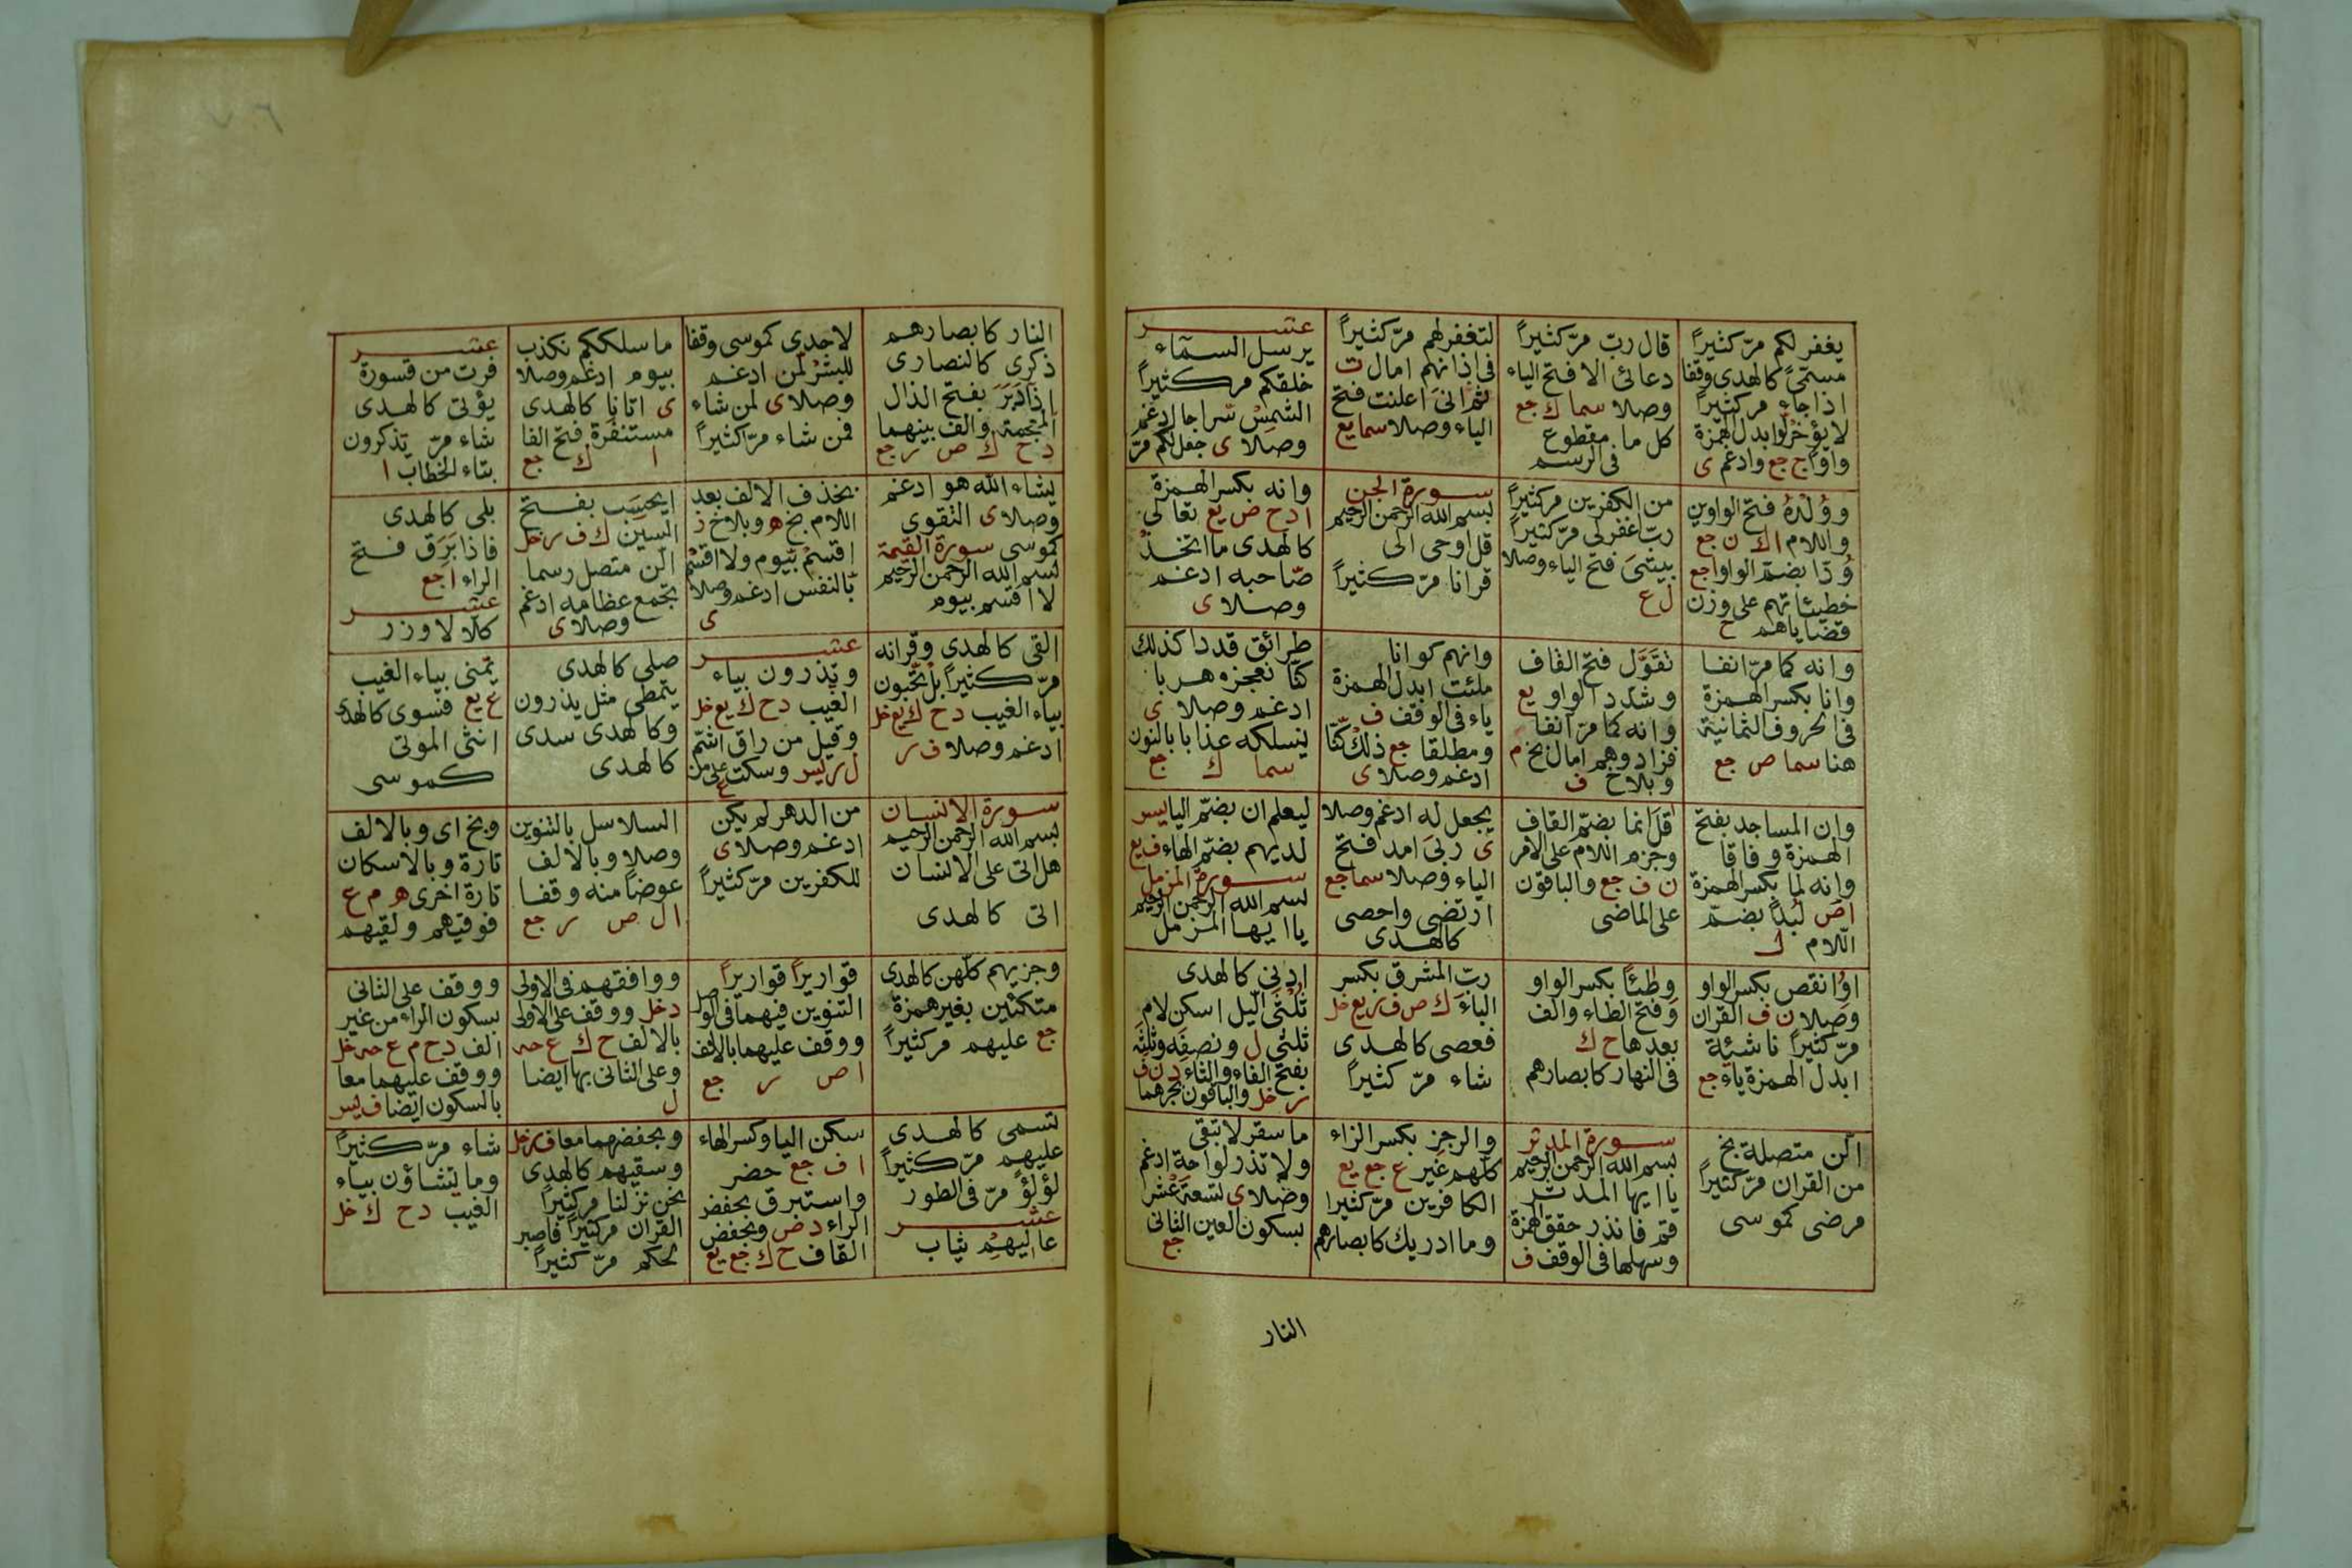 يغفر لكم مرّ كثيراً
مسمّىً كالهدى وقفا
اذا جاء مر كثيراً
لا يؤخر لو ابدل الهمزة
واواً ج جع وادغم ى
قال ربّ مرّ كثيراً
دعائى الا فتح الياء
وصلا سما ك جع
كل ما مقطوع
فى الرسم
لتغفر لهم مرّ كثيراً
فى اذانهم امال ت
ثم انى اعلنت فتح
الياء وصلا سما يع
عشر
يرسل السمآء
خلقكم مر كثيراً
الشمس سراجا ادغم
وصلا ى جعل لكم مرّ
وولده فتح الواوين
واللام ا ك ن جع
ودّا بضمّ الواو ا جع
خطيئاتهم على وزن
قضاياهم ح
من الكفرين مر كثيراً
ربّ اغفر لى مرّ كثيراً
بيتى فتح الياء وصلا
ل ع
سورة الجن
بسم الله الرحمن الرحيم
قل اوحى الى
قرانا مرّ كثيراً
وانه بكسر الهمزة
ا د ح ص يع تعالى
كالهدى ما اتخذ
صاحبه ادغم
وصلا ى
وانه كما مرّ انفا
وانا بكسر الهمزة
فى الحروف الثمانية
هنا سما ص جع
تقوّل فتح القاف
وشدد الواو يع
وانه كما مرّ انفا
فزادوهم امال بخ م
وبلاخ ف
وانهم كو انا
ملئت ابدل الهمزة
ياء فى الوقف ف
ومطلقا جع ذلك كنّا
ادغم وصلا ى
طرائق قددا كذلك
كنّا نعجزه هربا
ادغم وصلا ى
ينسلكه عذابا بالنون
سما ك جع
وان المساجد بفتح
الهمزة وفاقا
وانه لما بكسر الهمزة
ا ص لبدا بضمّ
اللام ل
قل انما بضمّ القاف
وجزم اللام على الامر
ن ف جع والباقون
على الماضى
يجعل له ادغم وصلا
ى ربى امد فتح
الياء وصلا سما جع
ارتضى واحصى
كالهدى
ليعلم ان بضمّ اليا يس
لديهم بضمّ الهاء ف يع
سورة المزمل
بسم الله الرحمن الرحيم
يا ايها المزمل
او انقص بكسر الواو
وصلا ن ف القران
مرّ كثيراً ناشئة
ابدل الهمزة ياء جع
وطئاً بكسر الواو
وفتح الطاء والف
بعدها ح ك
فى النهار كابصارهم
ربّ المشرق بكسر
الباء ك ص ف ر يع خل
فعصى كالهدى
شاء مرّ كثيراً
ادنى كالهدى
ثلثى الّيل اسكن لام
ثلثى ل ونصفه وثلثه
بفتح الفاء والثاء د ن ف
ر خل والباقون بجرهما
الّن متصلة بخ
من القران مرّ كثيراً
مرضى كموسى
سورة المدثر
بسم الله الرحمن الرحيم
يا ايها المدثر
قم فانذر حقق الهمزة
وسهلها فى الوقف ف
والرجز بكسر الزاء
كلهم غير ع جع يع
الكافرين مرّ كثيرا
وما ادريك كابصارهم
ما سقر لا تبقى
ولا تذر لواحة ادغم
وصلا ى تسعة عشر
بسكون العين الثانى
جع
النار
النار كابصارهم
ذكرى كالنصارى
اذ ادبر بفتح الذال
المعجمة والف بينهما
د ح ك ص ر جع
لاحدى كموسى وقفا
للبشر لمن ادغم
وصلا ى لمن شاء
فمن شاء مرّ كثيراً
ما سلككم نكذب
بيوم ادغم وصلا
ى اتانا كالهدى
مستنفرة فتح الفا
ا ك جع
عشر
فرت من قسورة
يؤتى كالهدى
شاء مرّ تذكرون
بتاء الخطاب ا
يشاء الله هو ادغم
وصلا ى التقوى
كموسى سورة القيمة
بسم الله الرحمن الرحيم
لا اقسم بيوم
بحذف الالف بعد
اللام بخ ه وبلاخ ز
اقسم بيوم ولا اقسم
بالنفس ادغم وصلا
ى
ايحسب بفتح
السين ك ف ر خل
الّن متصل رسما
نجمع عظامه ادغم
وصلا ى
بلى كالهدى
فاذا برق فتح
الراء ا جع
عشر
كلا لا وزر
القى كالهدى وقرانه
مرّ كثيراً بل تحبون
بياء الغيب د ح ك يع خل
ادغم وصلا ف ر
عشر
وتذرون بياء
الغيب د ح ك يع خل
وقيل من راق اشمّ
ل ر يس وسكت على من
ع
صلى كالهدى
يتمطى مثل يذرون
وكالهدى سدى
كالهدى
يمنى بياء الغيب
ع يع فسوى كالهدى
انثى الموتى
كموسى
سورة الانسان
بسم الله الرحمن الرحيم
هل اتى على الانسان
اتى كالهدى
من الدهر لم يكن
ادغم وصلا ى
للكفرين مرّ كثيراً
السلاسل بالتنوين
وصلا وبالالف
عوضاً منه وقفا
ا ل ص ر جع
وبخ اى وبالالف
تارة وبالاسكان
تارة اخرى ه م ع
فوقيهم ولقيهم
وجزيهم كلّهن كالهدى
متكئين بغير همزة
جع عليهم مر كثيراً
قواريراً قواريراً
التنوين فيهما فى الوصل
ووقف عليهما بالالف
ا ص ر جع
ووافقهم فى الاولى
د خل ووقف على الاولى
بالالف ح ك ع حه
وعلى الثانى بها ايضا
ل
ووقف على الثانى
بسكون الراء من غير
الف د ح م ع حه خل
ووقف عليهما معا
بالسكون ايضا ف يس
تسمى كالهدى
عليهم مرّ كثيراً
لؤلؤ مرّ فى الطور
عشر
عاليهم ثياب
سكن اليا وكسر الهاء
ا ف جع خضر
واستبرق بخفض
الراء د ص وبخفض
القاف ح ك جع يع
وبخفضهما معا ف ر خل
وسقيهم كالهدى
نحن نزلنا مر كثيراً
القران مر كثيراً فاصبر
لحكم مرّ كثيراً
شاء مرّ كثيراً
وما تشاؤن بياء
الغيب د ح ك خل